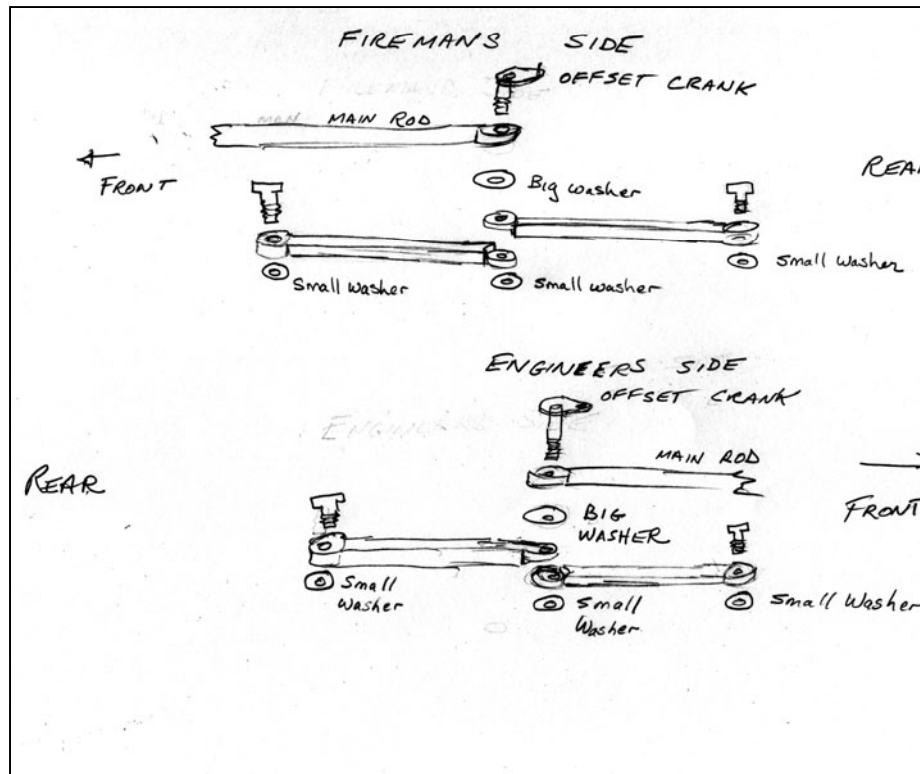 FIREMANS SIDE
OFFSET CRANK
MAIN ROD
FRONT
REAR
Big washer
Small washer
Small washer
Small washer
ENGINEERS SIDE
OFFSET CRANK
MAIN ROD
REAR
FRONT
BIG
WASHER
Small
Washer
Small
Washer
Small Washer